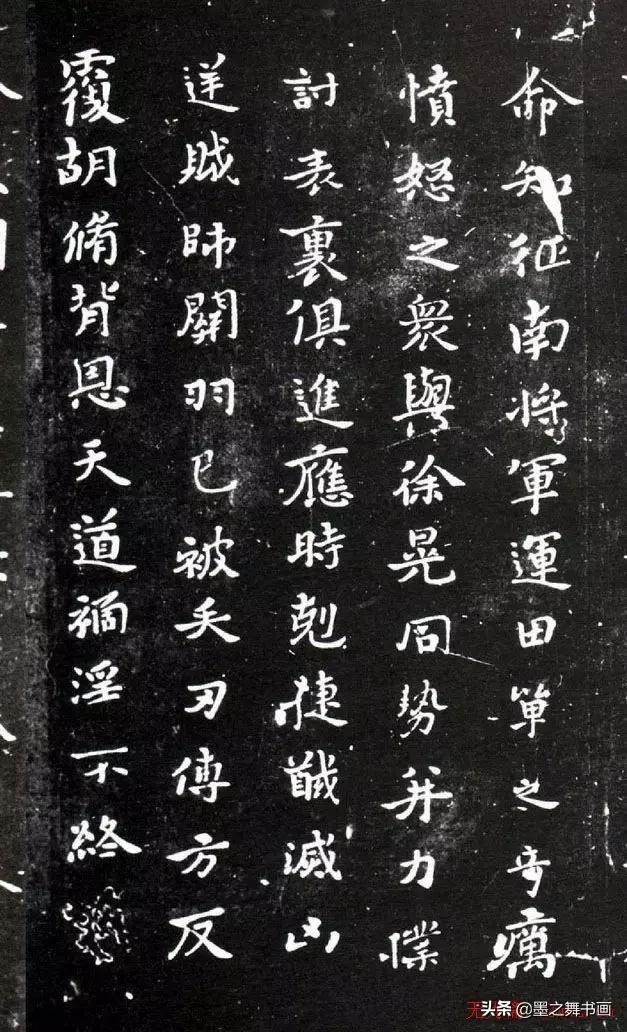 命知征南將軍運田單之奇厲
憤怒之衆與徐晃同勢并力撲
討表裏俱進應時剋捷馘滅凶
逆賊帥關羽已被矢刃傅方反
覆胡脩背恩天道禍淫不終
头条@墨之舞书画